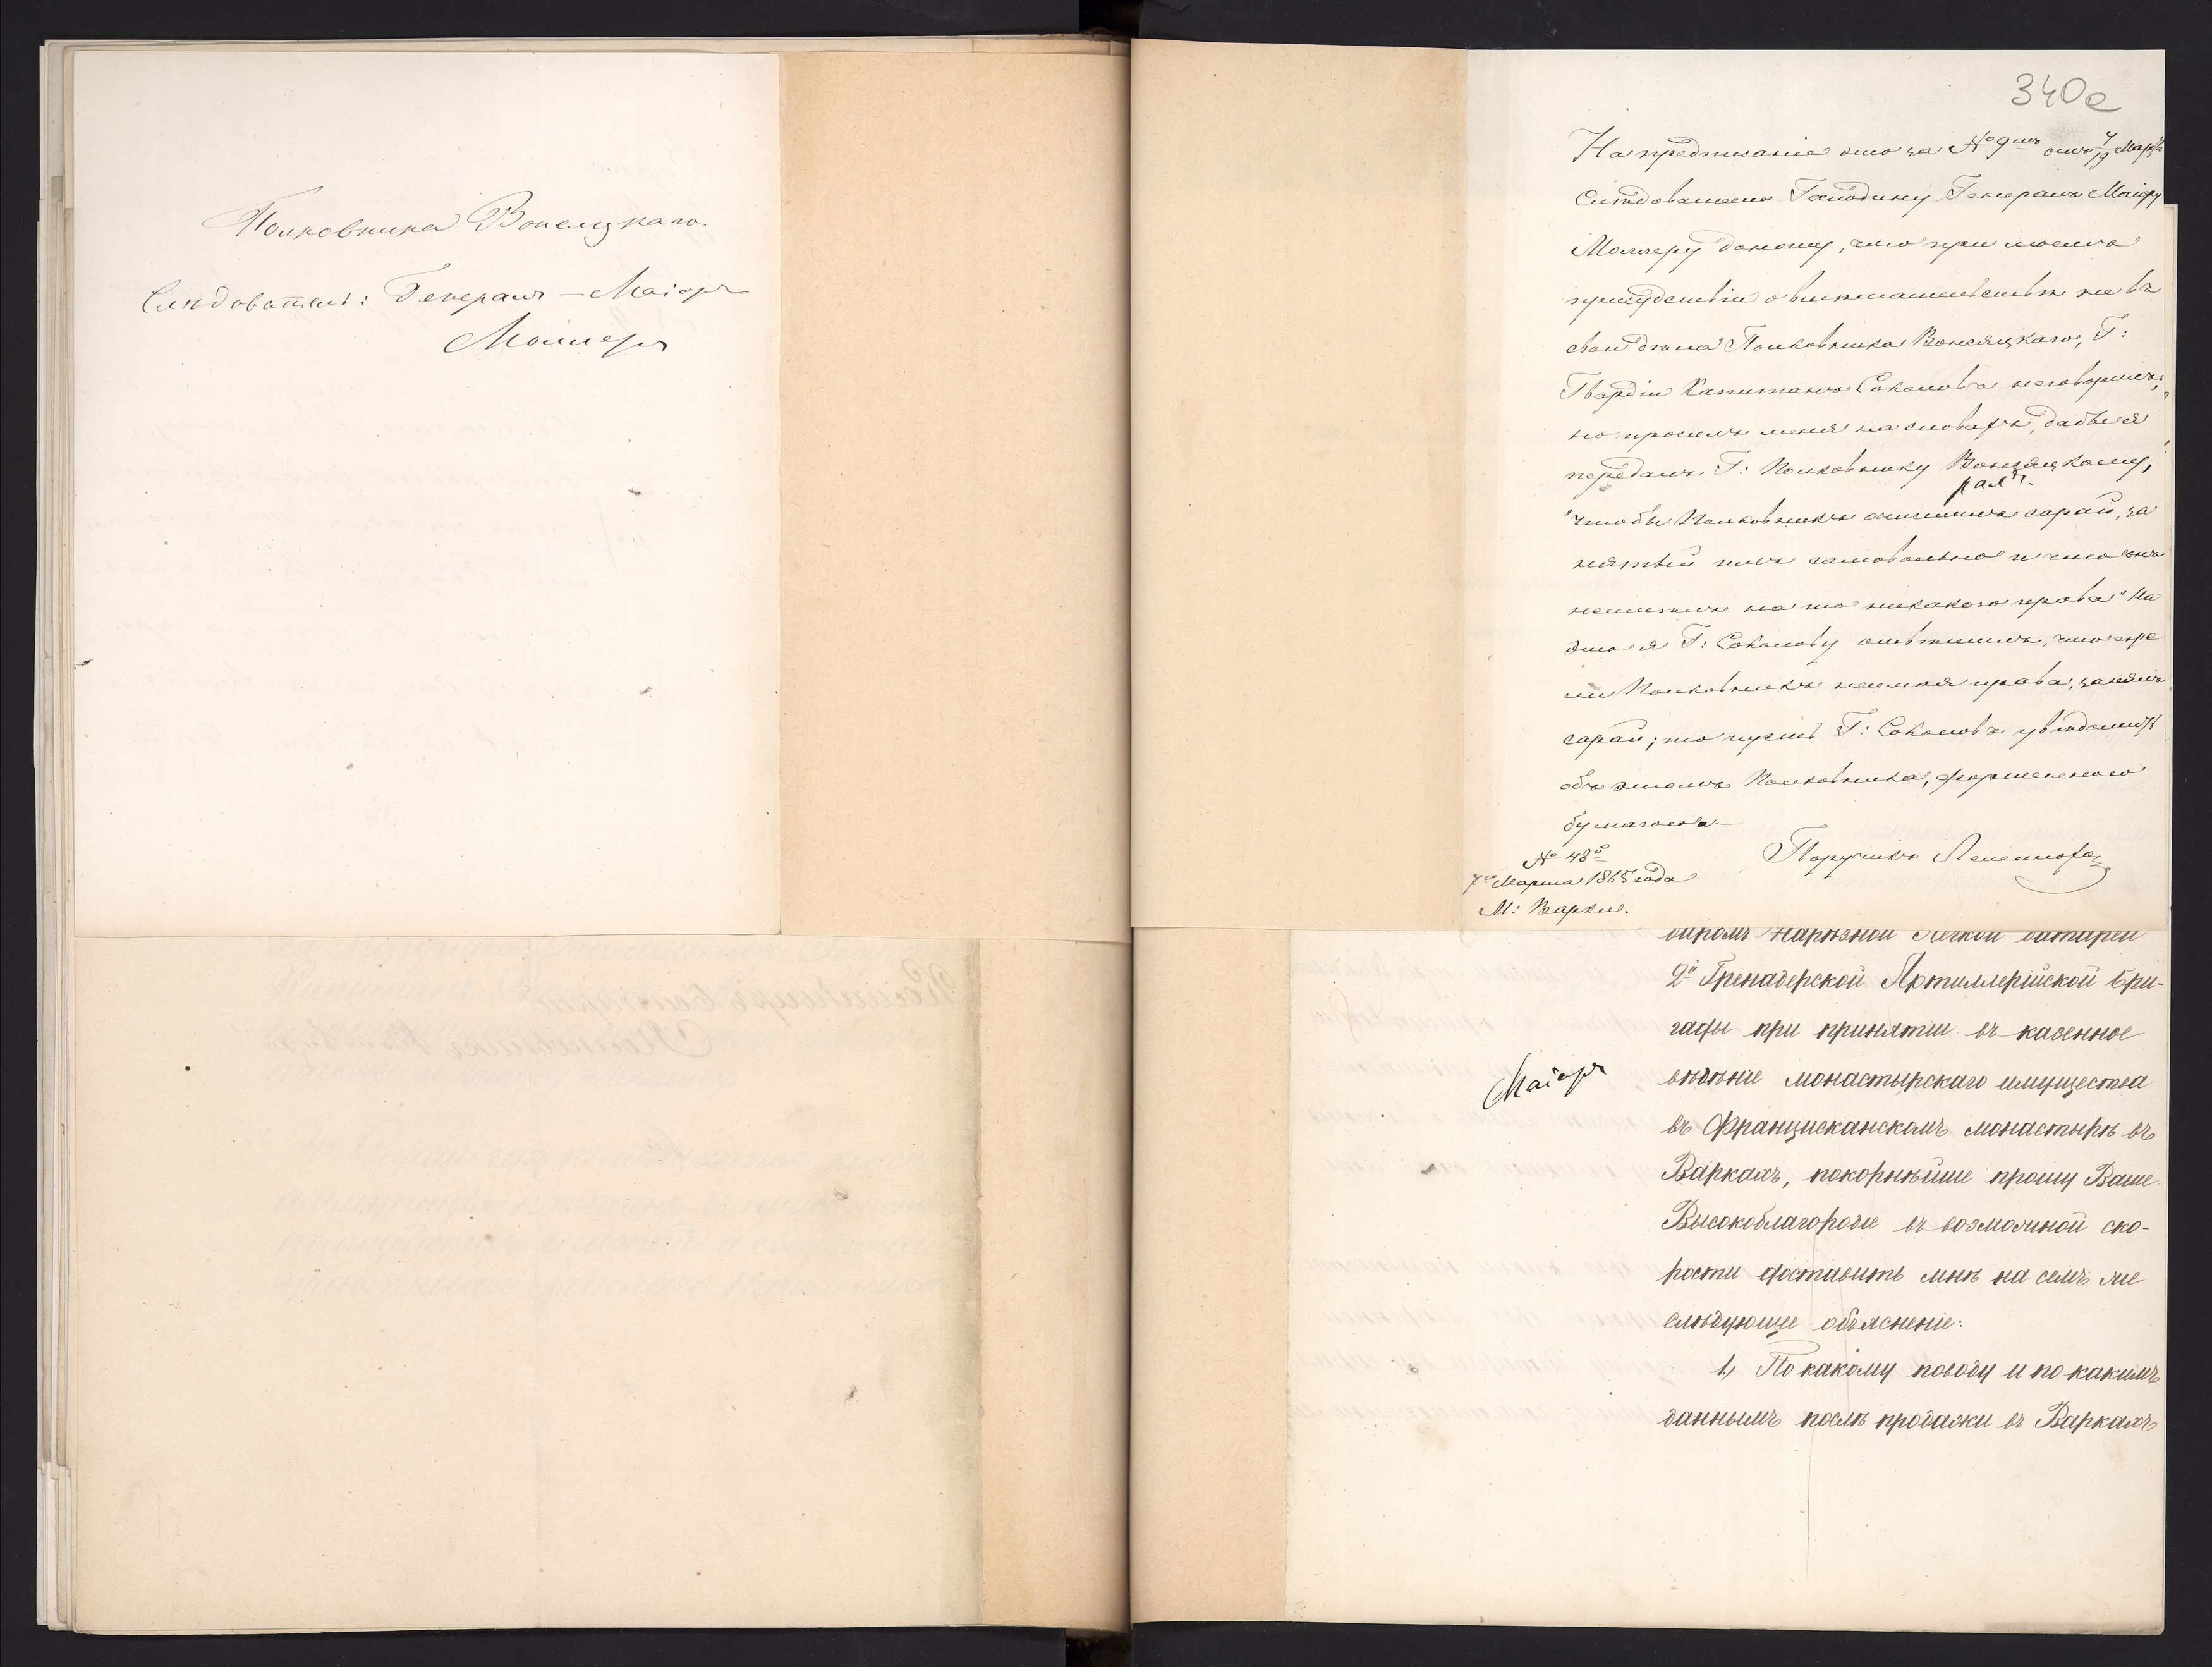 Полковника Вонсяцкаго.
Слѣдователь: Генералъ-Маіоръ
Моллеръ
340е
На предписаніе это за № 9мъ отъ 7/19 Марта
Слѣдователю Господину Генералъ Маіору
Моллеру доношу, что при моемъ
присудствіи о вмѣшательствѣ не въ
свои дѣла Полковника Вонсяцкаго, Г:
Гвардіи Капитанъ Соколовъ неговорилъ,
но просилъ меня на словахъ, дабы я
передалъ Г: Полковнику Вонсяцкому,
"чтобы Полковникъ очистилъ сарай, за
нятый имъ самовольно и что онъ
неимѣлъ на то никакого права" На
это я Г: Соколову отвѣтилъ, что еже
ли Полковникъ неимѣя права, занялъ
сарай; то пусть Г: Соколовъ увѣдомитъ
объ этомъ Полковника, форменною
бумагою
№ 48й
7го Марта 1865 года
М: Варки.
Поручикъ
диромъ Нарѣзной Легкой батареи
2й Гренадерской Артиллерійской Бри-
гады при принятіи въ казенное
вѣдѣніе монастырскаго имущества
Маіоръ
въ Францисканскомъ монастырѣ въ
Варкахъ, покорнѣйше прошу Ваше
Высокоблагородіе въ возможной ско-
рости доставить мнѣ на семъ же
слѣдующее объясненіе:
1, По какому поводу и по какимъ
даннымъ послѣ продажи въ Варкахъ